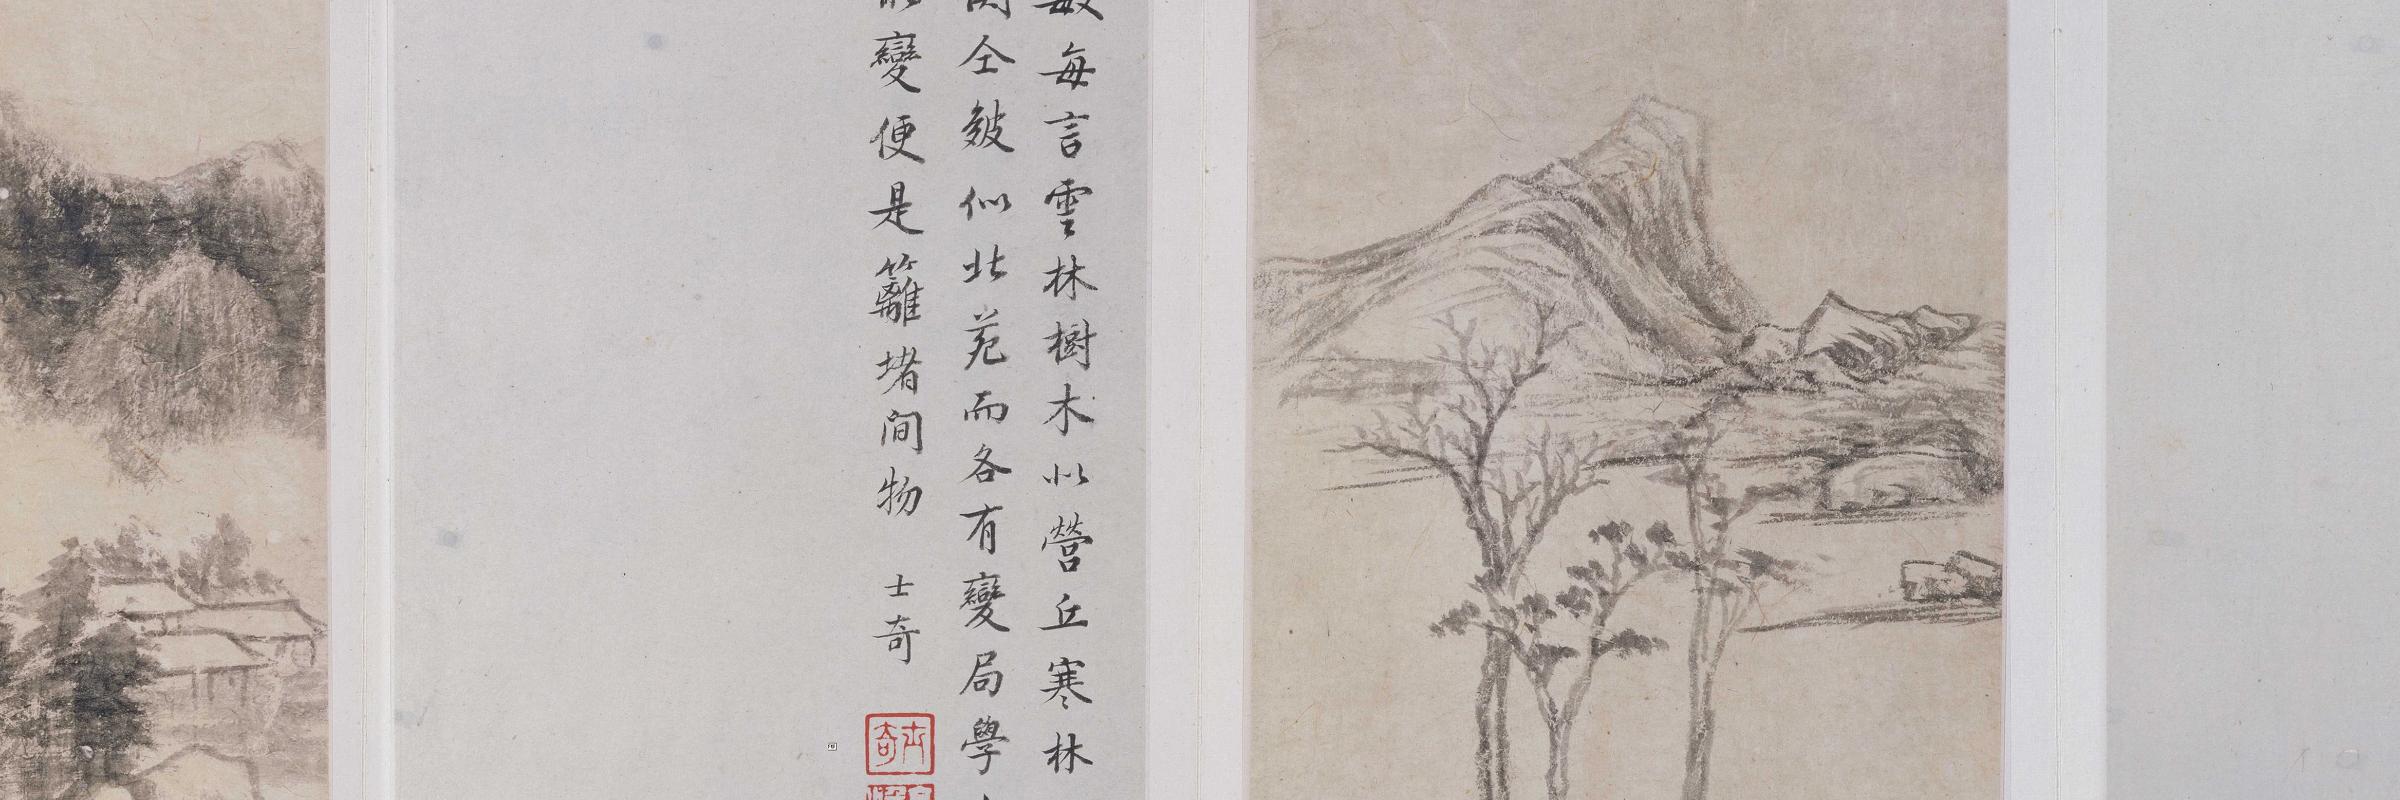 每言雲林樹木似營丘寒林
仝皴似北苑而各有變局學
變便是籬堵間物
士奇
士奇